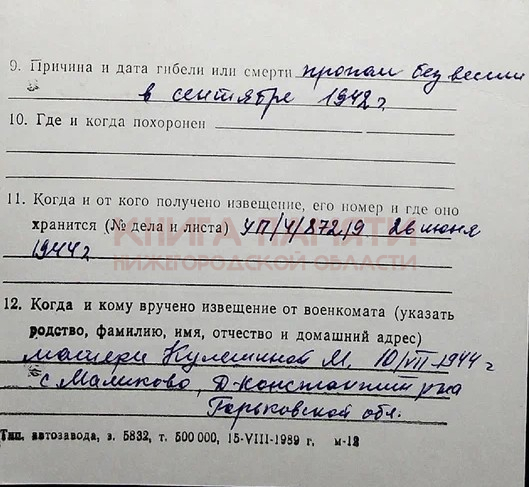 9. Причина и дата гибели или смерти пропал без вести
в сентябре 1942 г
10. Где и когда похоронен
11. Когда и от кого получено извещение, его номер и где оно
хранится (№ дела и листа) УП/4/872/9 26 июня
1944 г
КНИГА ПАМЯТИ
НИЖЕГОРОДСКОЙ ОБЛАСТИ
12. Когда и кому вручено извещение от военкомата (указать
родство, фамилию, имя, отчество и домашний адрес)
матери Кулешиной М. 10/VII-1944 г
с. Маликово, Д-Константин р-на
Горьковской обл.
Тип. автозавода, з. 5832, т. 500 000, 15-VIII-1989 г. м-12